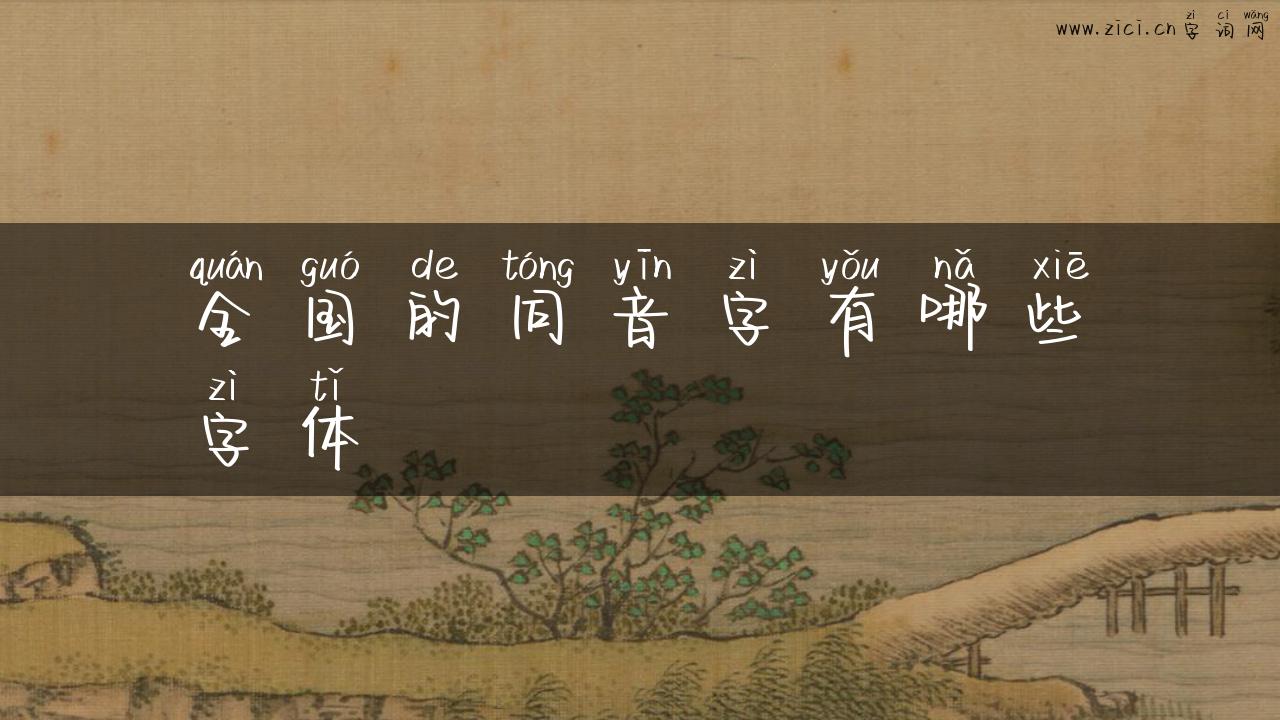 zì cí wǎng
www.zici.cn 字词网
quán guó de tóng yīn zì yǒu nǎ xiē
全国的同音字有哪些
zì tǐ
字体